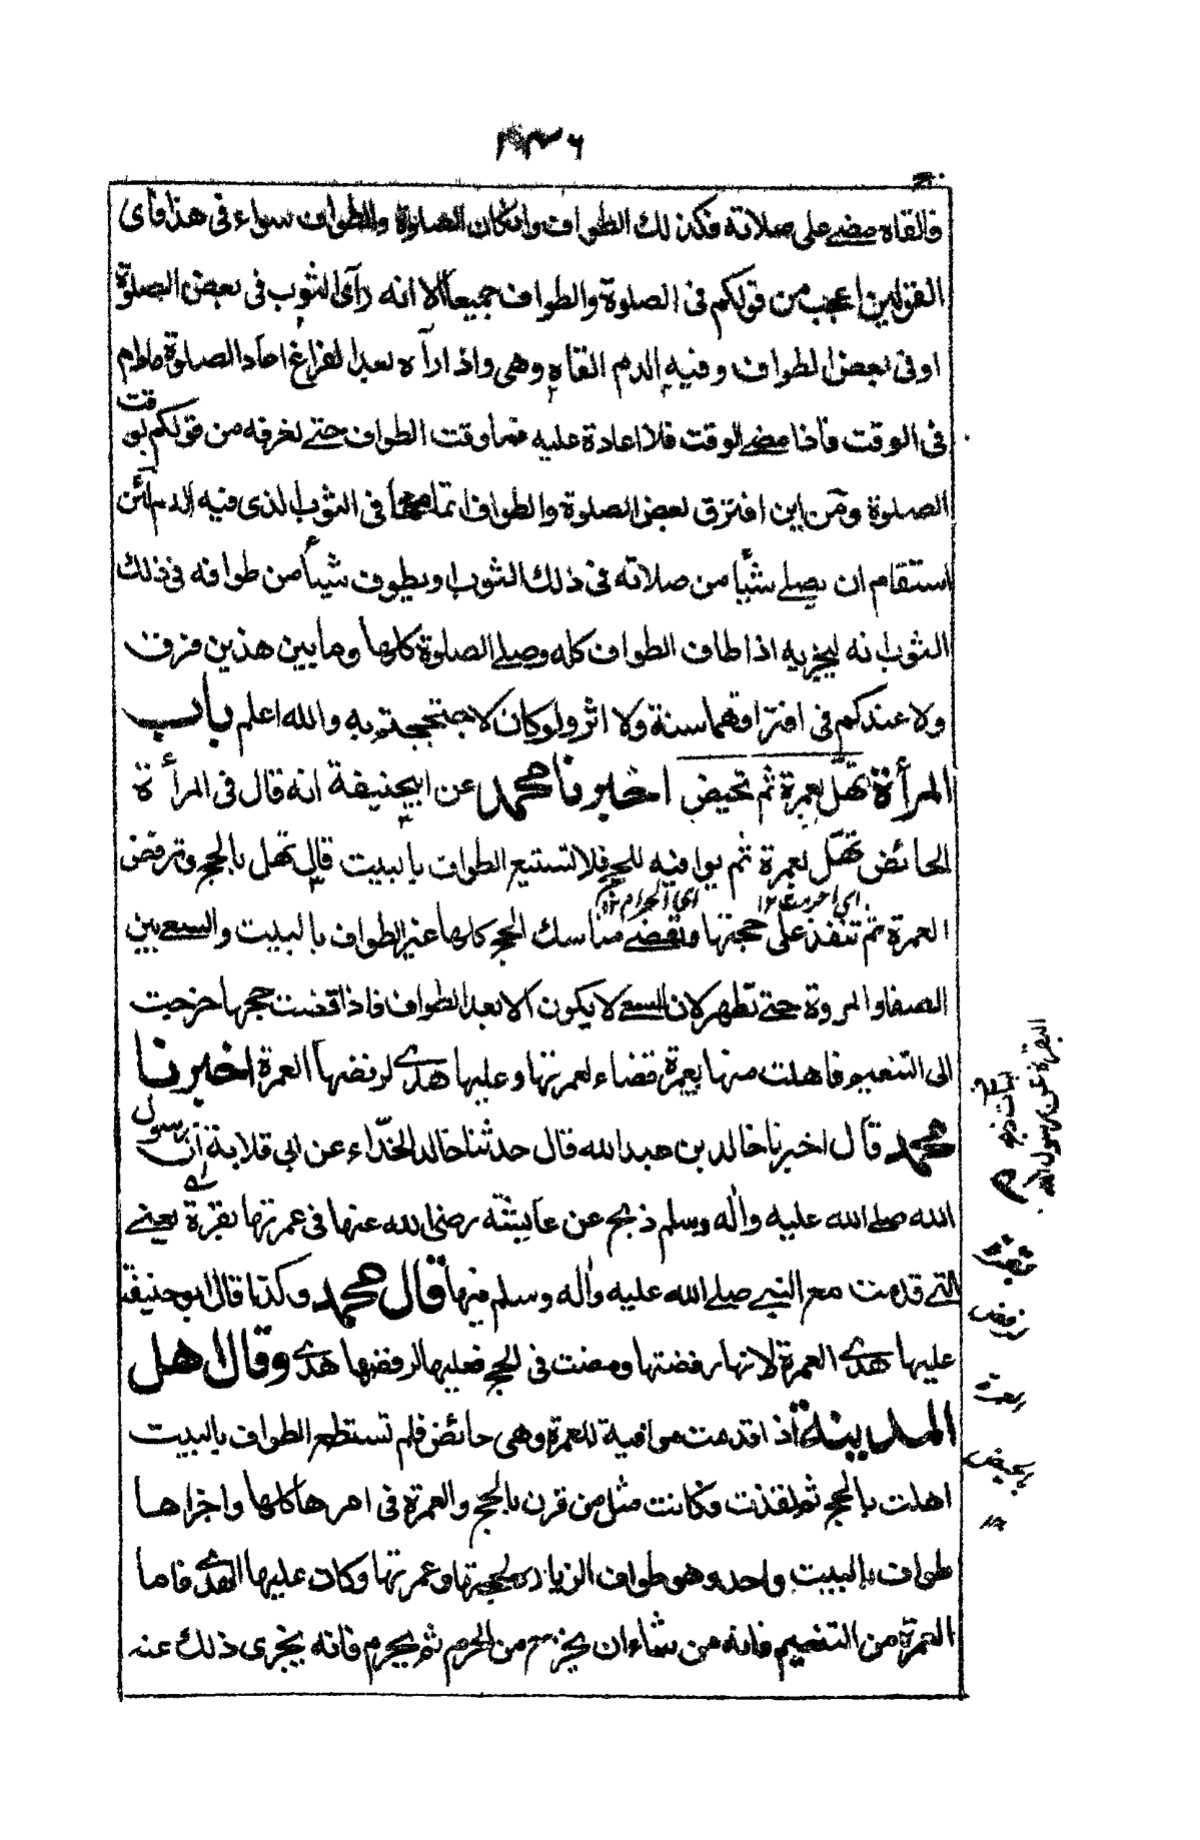 فالقاه مضى على صلاته فكذلك الطواف وان كان الصلوة والطواف سواء فى هذا فاى
القولين اعجب من قولكم فى الصلوة والطواف جميعا الا انه رآى الثوب فى بعض الصلوة
او فى بعض الطواف وفيه الدم القاه وهى واذا رآه بعد الفراغ اعاد الصلوة مادام
فى الوقت فاذا مضى الوقت فلا اعادة عليه فما وقت الطواف حتى نعرفه من قولكم لوقت
الصلوة ومن اين افترق بعض الصلوة والطواف اتمامهما فى الثوب الذى فيه الدم لئن
استقام ان يصلى شيئا من صلاته فى ذلك الثوب او يطوف شيئا من طوافه فى ذلك
الثوب انه ليجزيه اذا طاف الطواف كله وصلى الصلوة كلها وما بين هذين فرق
ولا عندكم فى افتراقهما سنة ولا اثر ولو كان لاحتججتم به والله اعلم باب
المرأة تهل بعمرة ثم تحيض اخبرنا محمد عن ابيحنيفة انه قال فى المرأة
الحائض تهل بعمرة ثم يوافيه للحج فلا تستطيع الطواف بالبيت قال تهل بالحج وترفض
اى احرمت ١٢ اى الحرام ١٢
العمرة ثم تنفذ على حجتها وتقضى مناسك الحج كلها غير الطواف بالبيت والسعى بين
الصفا والمروة حتى تطهر لان السعى لا يكون الا بعد الطواف فاذا قضت حجها خرجت
الى التنعيم فاهلت منها بعمرة قضاء لعمرتها وعليها هدى لرفضها العمرة اخبرنا
محمد قال اخبرنا خالد بن عبد الله قال حدثنا خالد الحذّاء عن ابى قلابة ان رسول
الله صلى الله عليه واله وسلم ذبح عن عايشة رضى الله عنها فى عمرتها بقرة يعنى
التى قدمت مع النبى صلى الله عليه واله وسلم فيها قال محمد وكذا قال ابو حنيفة
عليها هدى العمرة لانها رفضتها ومضت فى الحج فعليها لرفضها هدى وقال اهل
المدينة اذا قدمت موافية للعمرة وهى حائض فلم تستطع الطواف بالبيت
اهلت بالحج ثم نفذت وكانت مثل من قرن بالحج والعمرة فى امرها كلها واجزاها
طواف بالبيت واحد وهو طواف الزيارة لحجتها وعمرتها وكان عليها الهدى فاما
العمرة من التنعيم فانه من شاء ان يخرج من الحرم ثم يحرم فانه يجزى ذلك عنه
البقرة عن رسول الله
رفض
العمرة
بالحيض
١٢